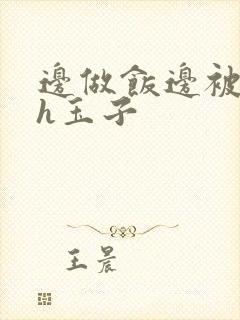 邊做飯邊被
h玉子
王晨